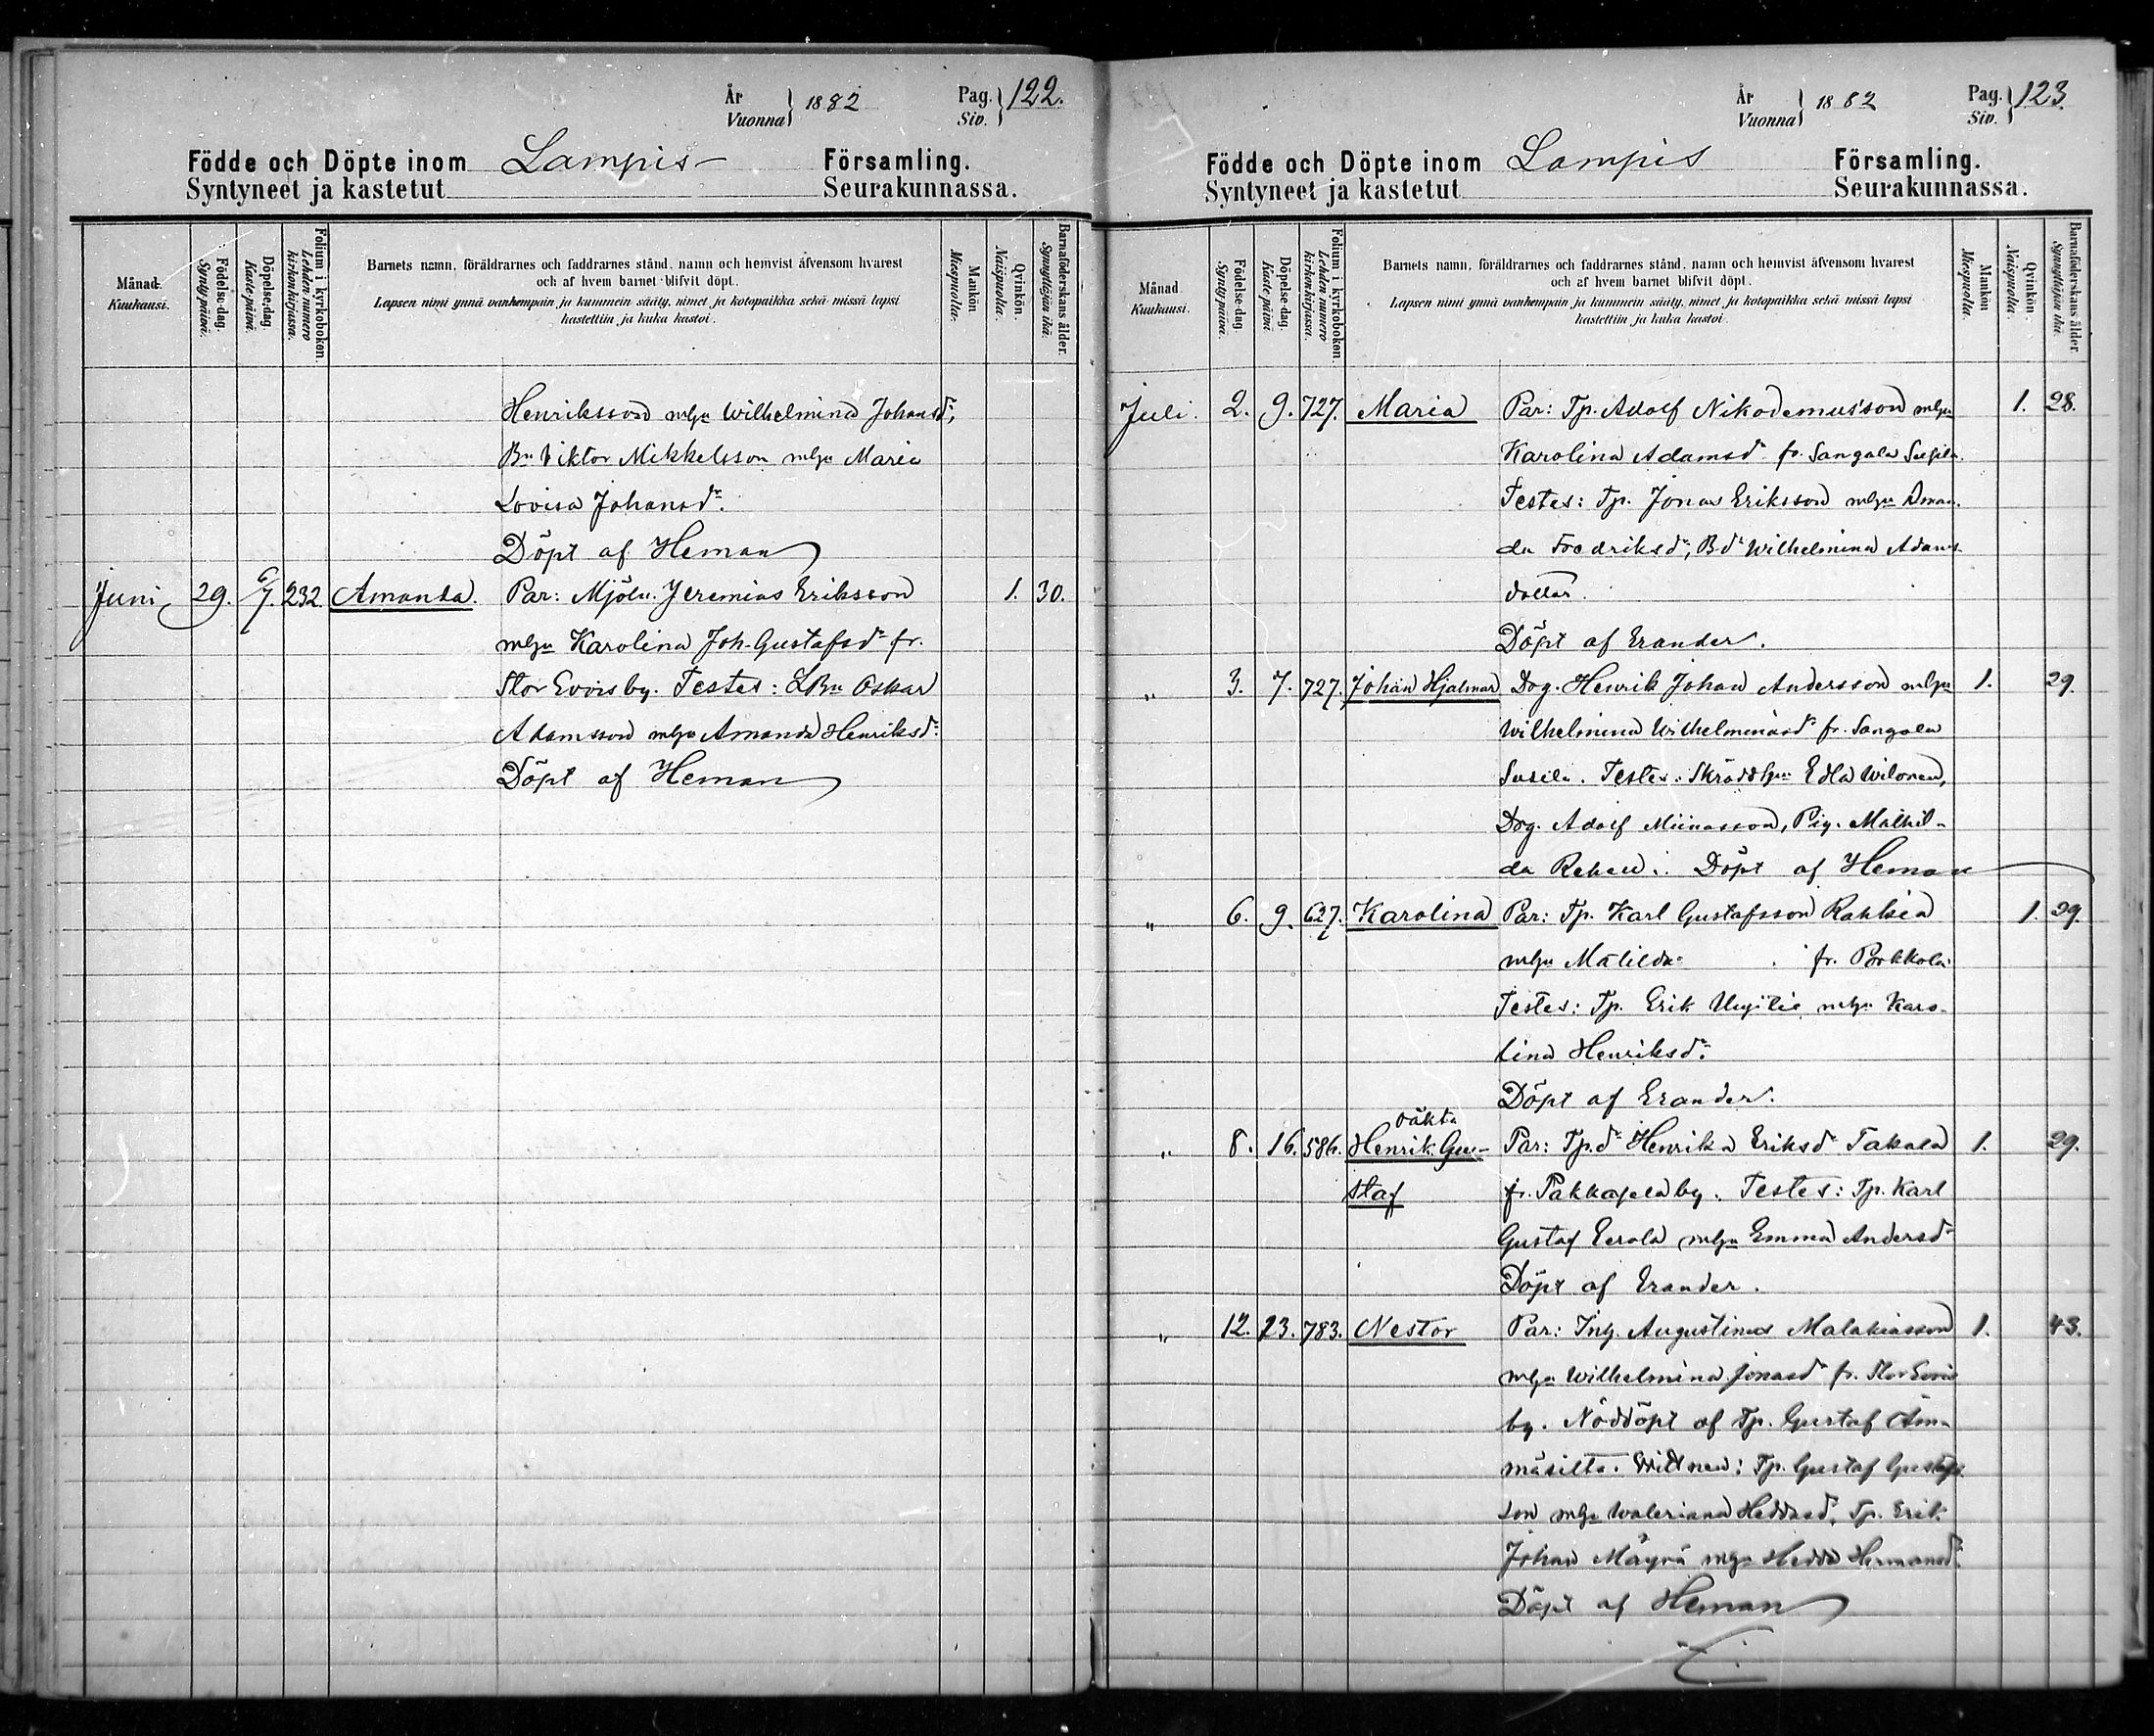 År
Vuonna 1882
Pag.
Siv. 122.
Födde och Döpte inom Lampis Församling.
Syntyneet ja kastetut Seurakunnassa.
Månad. Kuukausi.
Födelse-dag. Synty-päivä.
Döpelse-dag. Kaste-päivä.
Folium i kyrkoboken. Lehden numero kirkonkirjassa.
Barnets namn, föräldrarnes och faddrarnes stånd, namn och hemvist äfvensom hvarest
och af hvem barnet blifvit döpt.
Lapsen nimi ynnä vanhempain ja kummein sääty, nimet ja kotopaikka sekä missä lapsi
kastettiin ja kuka kastoi.
Mankön Miespuolia.
Qvinkön. Naispuolia.
Barnaföderskans ålder. Synnyttäjän ikä.
Henriksson m hu Wilhelmina Johansdr,
Bn Viktor Mikkelsson m hu Maria
Lovisa Johansdr.
Döpt af Heman
Juni 29. 6/7. 232. Amanda. Par: Mjöln. Jeremias Eriksson 1. 30.
m hu Karolina Joh. Gustafsdr fr.
Stor Evois by. Testes: LBn Oskar
Adamsson m hu Amanda Henriksdr.
Döpt af Heman
År
Vuonna 1882
Pag.
Siv. 123.
Födde och Döpte inom Lampis Församling.
Syntyneet ja kastetut Seurakunnassa.
Månad Kuukausi.
Födelse-dag. Synty-päivä.
Döpelse-dag. Kaste-päivä
Folium i kyrkoboken. Lehden numero kirkonkirjassa.
Barnets namn, föräldrarnes och faddrarnes stånd, namn och hemvist äfvensom hvarest
och af hvem barnet blifvit döpt.
Lapsen nimi ynnä vanhempain ja kummein sääty, nimet ja kotopaikka sekä missä lapsi
kastettiin ja kuka kastoi.
Mankön Miespuolia.
Qvinkön. Naispuolia.
Barnaföderskans ålder Synnyttäjän ikä.
Juli. 2. 9. 727. Maria Par: Tp. Adolf Nikodemusson m hu 1. 28.
Karolina Adamsdr fr. Sangala
Testes: Tp. Jonas Eriksson m hu Aman-
da Fredriksdr, Bdr Wilhelmina Adams-
dotter.
Döpt af Erander.
" 3. 7. 727. Johan Hjalmar Dog. Henrik Johan Andersson m hu 1. 29.
Wilhelmina fr. Sangala
Testes: Edla
Dog. Adolf Pig. Mathil-
da Döpt af Heman
" 6. 9. 627. Karolina Par: Tp. Karl Gustafsson 1. 29.
m hu Matilda fr. Porkkola
Testes: Tp. Erik m hu Karo-
lina Henriksdr.
Döpt af Erander.
oäkta
" 8. 16. 586. Henrik Gu- Par: Tp.dr Henrika Eriksdr Takala 1. 29.
staf fr. by. Testes: Tp. Karl
Gustaf Eerola m hu Emma Andersdr
Döpt af Erander.
" 12. 23. 783. Nestor Par: Inh. Augustinus Malakiasson 1. 43.
m hu Wilhelmina Jonasdr fr. Stor Evois
by. Nöddöpt af Tp. Gustaf Äm-
mäsilta. Wittnen: Tp. Gustaf Gustafs-
son m hu Waleriana Tp. Erik
Johan Mäyrä m hu Hedda Hermansdr.
Döpt af Heman